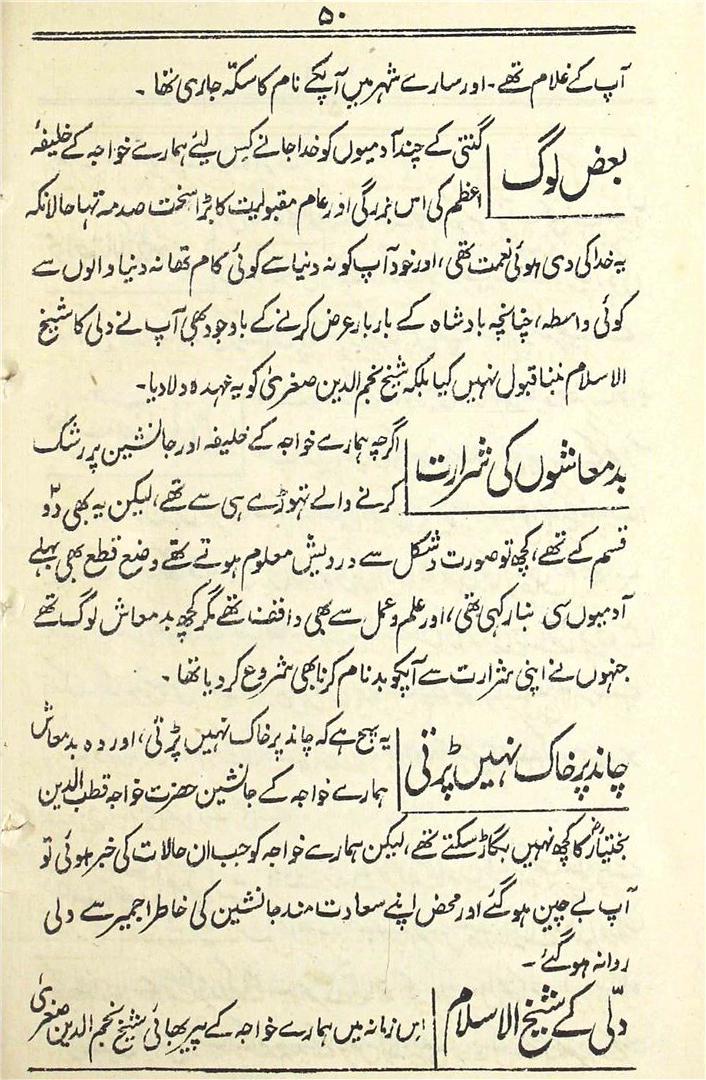 ۵۰
آپ کے غلام تھے۔ اور سارے شہر میں آپکے نام کا سکّہ جاری تھا۔
بعض لوگ
گنتی کے چند آدمیوں کو خدا جانے کس لیئے ہمارے خواجہ کے خلیفۂ
اعظم کی اس بزرگی اور عام مقبولیت کا بڑا سخت صدمہ تہا حالانکہ
یہ خدا کی دی ہوئی نعمت تھی، اور خود آپ کو نہ دنیا سے کوئی کام تھا نہ دنیا والوں سے
کوئی واسطہ، چنانچہ بادشاہ کے بار بار عرض کرنے کے باوجود بھی آپ نے دلی کا شیخ
الاسلام بننا قبول نہیں کیا بلکہ شیخ نجم الدین صغریٰ کو یہ عہدہ دلا دیا۔
بدمعاشوں کی شرارت
اگرچہ ہمارے خواجہ کے خلیفہ اور جانشین پر رشک
کرنے والے تہوڑے ہی سے تھے، لیکن یہ بھی دو
قسم کے تھے، کچھ تو صورت و شکل سے درویش معلوم ہوتے تھے وضع قطع بھی پہلے
آدمیوں سی بنا رکہی تھی، اور علم و عمل سے بھی واقف تھے مگر کچھ بدمعاش لوگ تھے
جنہوں نے اپنی شرارت سے آپکو بدنام کرنا بھی شروع کر دیا تھا۔
چاند پر خاک نہیں پڑتی
یہ سچ ہے کہ چاند پر خاک نہیں پڑتی، اور وہ بدمعاش
ہمارے خواجہ کے جانشین حضرت خواجہ قطب الدین
بختیارؒ کا کچھ نہیں بگاڑ سکتے تھے، لیکن ہمارے خواجہ کو جب ان حالات کی خبر ہوئی تو
آپ بے چین ہو گئے اور محض اپنے سعادت مند جانشین کی خاطر اجمیر سے دلی
روانہ ہو گئے۔
دلّی کے شیخ الاسلام
اس زمانہ میں ہمارے خواجہ کے پیر بھائی شیخ نجم الدین صغریٰ